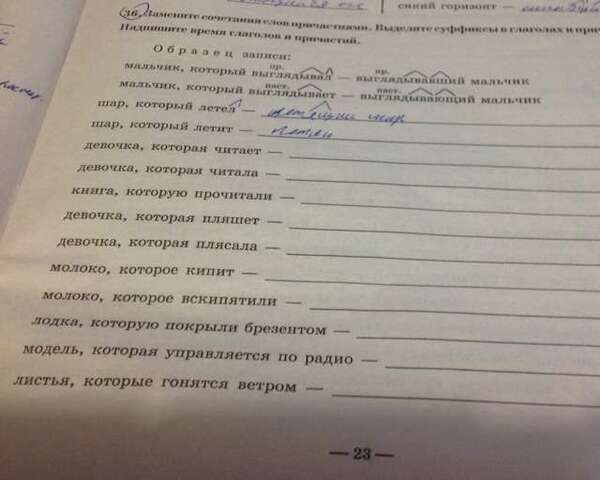 синий горизонт —
36. Замените сочетания слов причастиями. Выделите суффиксы в глаголах и при
Надпишите время глаголов и причастий.
Образец записи:
пр. пр.
мальчик, который выглядывал — выглядывавший мальчик
наст. наст.
мальчик, который выглядывает — выглядывающий мальчик
шар, который летел — шар
шар, который летит —
девочка, которая читает —
девочка, которая читала —
книга, которую прочитали —
девочка, которая пляшет —
девочка, которая плясала —
молоко, которое кипит —
молоко, которое вскипятили —
лодка, которую покрыли брезентом —
модель, которая управляется по радио —
листья, которые гонятся ветром —
— 23 —